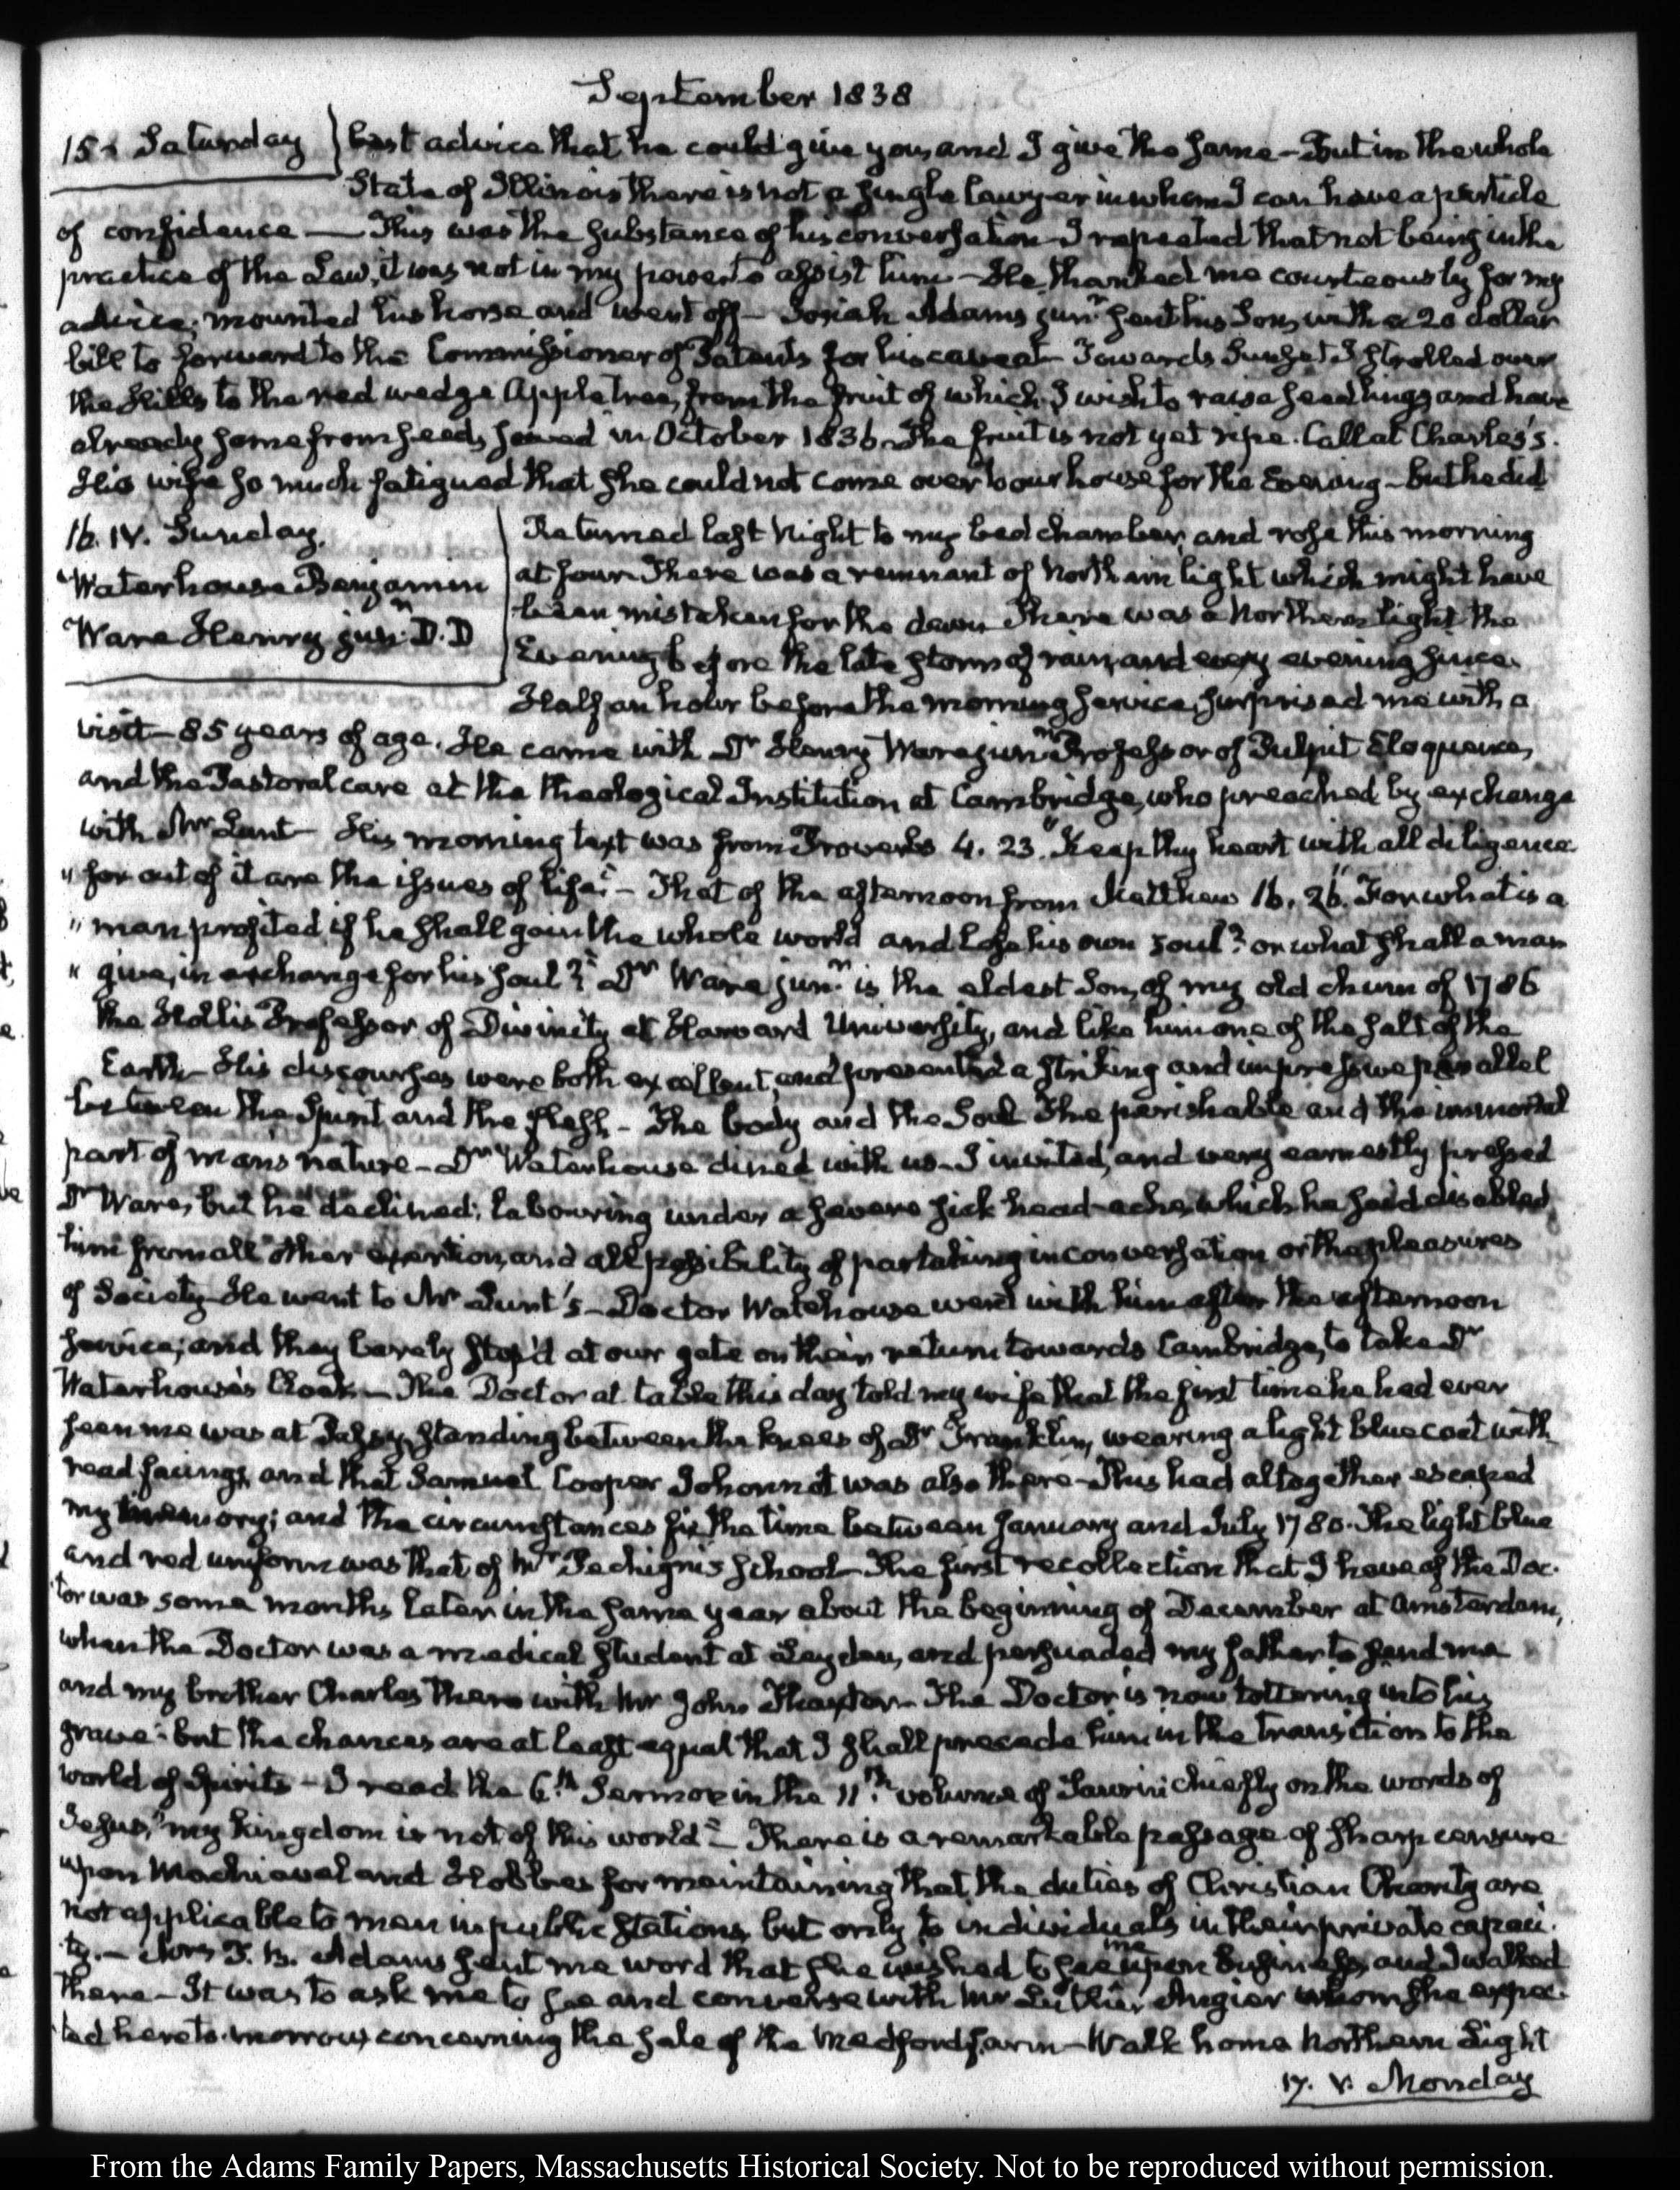 September 1838
15. Saturday
best advice that he could give you, and I give the same — But in the whole
State of Illinois there is not a single lawyer in whom I can have a particle
of confidence — This was the substance of his conversation — I repeated that not being in the
practice of the Law, it was not in my power to assist him — He thanked me courteously for my
advice; mounted his horse and went off — Josiah Adams junr. sent his Son, with a 20 dollar
bill to forward to the Commissioner of Patents for his caveat — Towards Sunset I strolled over
the Hills to the red wedge Apple tree, from the fruit of which I wish to raise seedlings, and have
already some from seeds sowed in October 1836. The fruit is not yet ripe. Call at Charles's.
His wife so much fatigued that she could not come over to our house for the Evening — but he did
16. IV. Sunday.
Waterhouse Benjamin
Ware Henry junr. D.D
Returned last Night to my bed chamber, and rose this morning
at four. There was a remnant of Northern light which might have
been mistaken for the dawn. There was a Northern light the
Evening before the late storm of rain, and every evening since.
Half an hour before the morning service, surprised me with a
visit — 85 years of age. He came with Dr Henry Ware junr. Professor of Pulpit Eloquence,
and the Pastoral care at the theological Institution at Cambridge, who preached by exchange
with Mr Lunt — His morning text was from Proverbs 4. 23. "Keep thy heart with all diligence
"for out of it are the issues of life." — That of the afternoon from Matthew 16. 26. "For what is a
"man profited, if he shall gain the whole world and lose his own soul? or what shall a man
"give, in exchange for his soul?" Dr Ware junr. is the eldest Son, of my old chum of 1786
the Hollis Professor of Divinity at Harvard University, and like him one of the salt of the
Earth — His discourses were both excellent, and presented a striking and impressive parallel
between the Spirit and the flesh — The body and the Soul The perishable and the immortal
part of man's nature — Dr Waterhouse dined with us — I invited, and very earnestly pressed
Dr Ware, but he declined; labouring under a severe sick head-ache, which he said disabled
him from all other exertion, and all possibility of partaking in conversation or the pleasures
of Society — He went to Mr Lunt's — Doctor Waterhouse went with him after the afternoon
service; and they barely stop'd at our gate on their return towards Cambridge, to take Dr
Waterhouse's Cloak — The Doctor at table this day told my wife that the first time he had ever
seen me was at Passy, standing between the knees of Dr Franklin, wearing a light blue coat with
read facings, and that Samuel Cooper Johonnot was also there — This had altogether escaped
my memory; and the circumstances fix the time between January and July 1780. The light blue
and red uniform was that of Mr Pechigni's school — The first recollection that I have of the Doc-
tor was some months later in the same year about the beginning of December at Amsterdam,
when the Doctor was a medical student at Leyden, and persuaded my father to send me
and my brother Charles there with Mr John Thaxter — The Doctor is now tottering into his
grave: but the chances are at least equal that I shall precede him in the transition to the
world of Spirits — I read the 6th. Sermon in the 11th. volume of Saurin chiefly on the words of
Jesus, "my kingdom is not of this world" — There is a remarkable passage of sharp censure
upon Machiavel and Hobbes for maintaining that the duties of Christian Charity are
not applicable to men in public stations, but only to individuals in their private capaci-
ty. — Mrs T. B. Adams sent me word that she wished to see me upon business, and I walked
there — It was to ask me to see and converse with Mr Luther Angier whom she expec-
ted here to-morrow, concerning the sale of the Medford farm — Walk home Northern Light
17. V. Monday
From the Adams Family Papers, Massachusetts Historical Society. Not to be reproduced without permission.